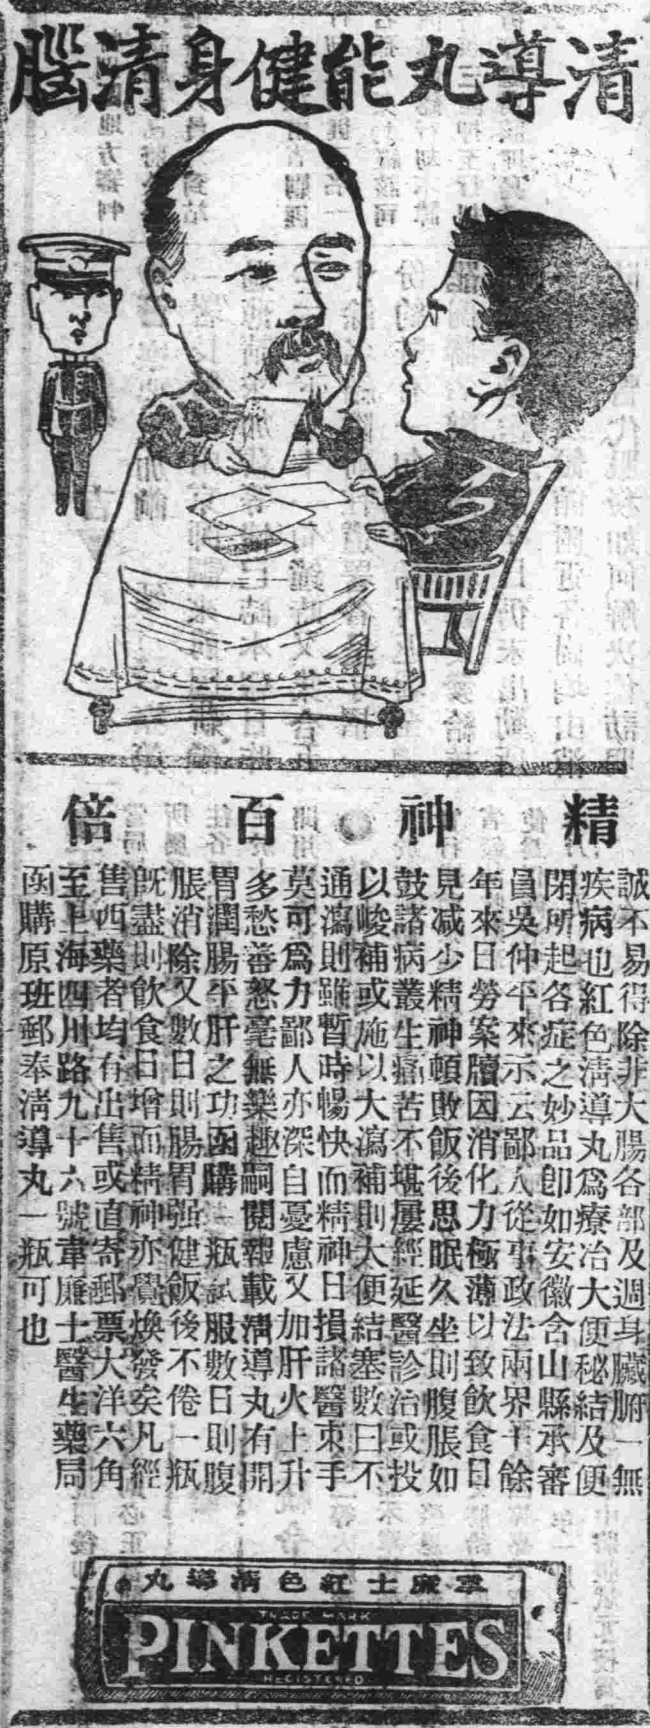 清導丸能健身清腦
精神百倍
誠不易得除非大腸各部及週身臟腑一無
疾病也紅色清導丸爲療治大便秘結及便
閉所起各症之妙品卽如安徽含山縣承審
員吳仲平來示云鄙人從事政法兩界十餘
年來日勞案牘因消化力極薄以致飲食日
見減少精神頓敗飯後思眠久坐則腹脹如
鼓諸病叢生痛苦不堪屢經延醫診治或投
以峻補或施以大瀉補則大便結塞數日不
通瀉則雖暫時暢快而精神日損諸醫束手
莫可爲力鄙人亦深自憂慮又加肝火上升
多愁善怒毫無樂趣嗣閱報載清導丸有開
胃潤腸平肝之功函購一瓶試服數日則腹
脹消除又數日則腸胃强健飯後不倦一瓶
旣盡則飲食日增而精神亦覺煥發矣凡經
售西藥者均有出售或直寄郵票大洋六角
至上海四川路九十六號韋廉士醫生藥局
函購原班郵奉清導丸一瓶可也
韋廉士紅色清導丸
TRADE MARK
PINKETTES
REGISTERED